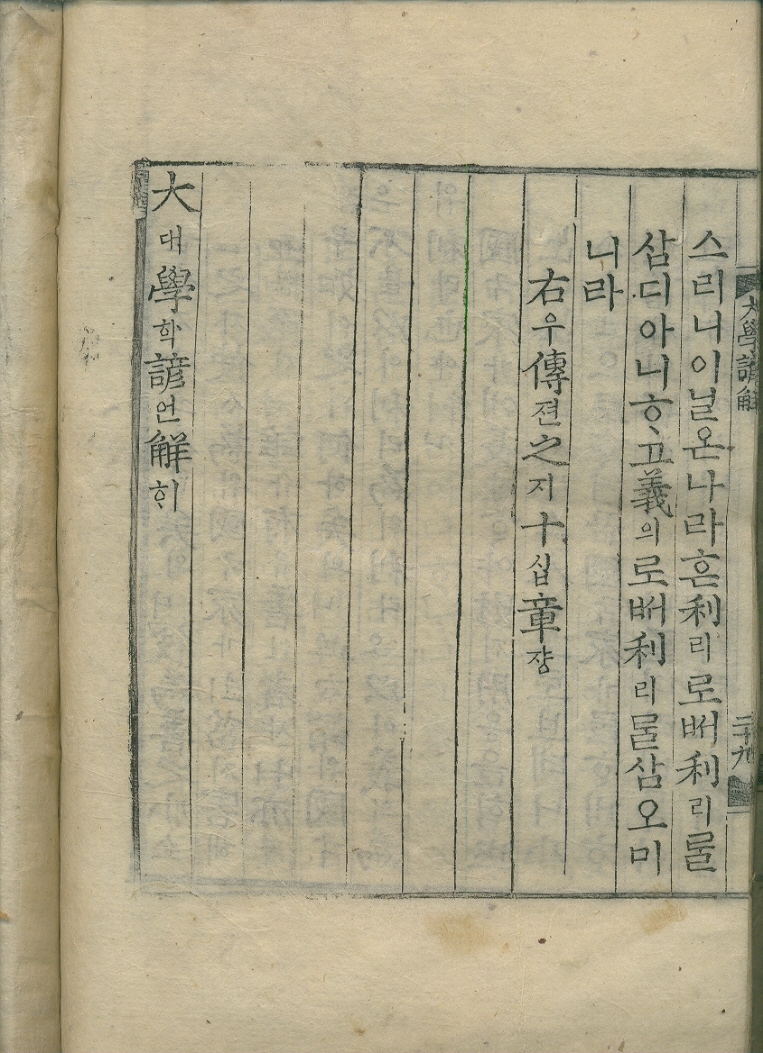 大學諺解
二十九
스리니이닐온나라흔利리로ᄡᅥ利리룰
삼디아니ᄒᆞ고義의로ᄡᅥ利리룰삼오미
니라
右우傳젼之지十십章쟝
大대學학諺언解ᄒᆡ